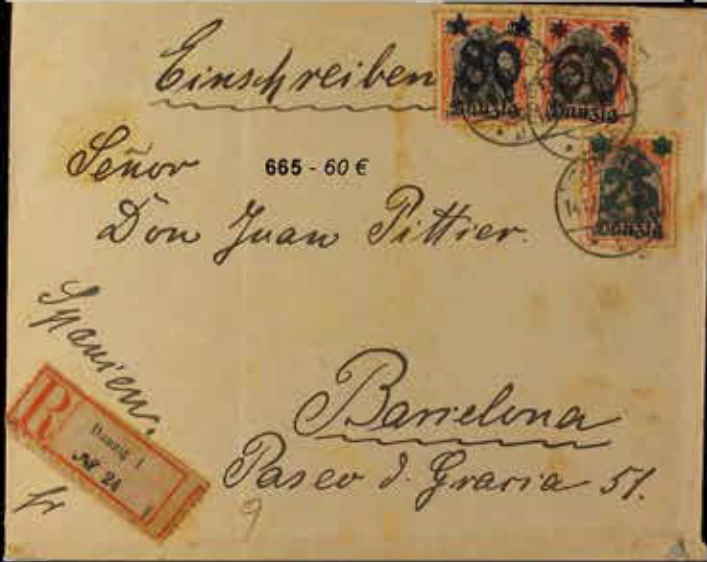 Einschreiben
80 60
Danzig Danzig
Señor
665 - 60 €
Don Juan Pittier.
25
Danzig
Spanien.
Barcelona
Paseo d. Gracia 51.
R
Danzig 1
№ 24
fr
9